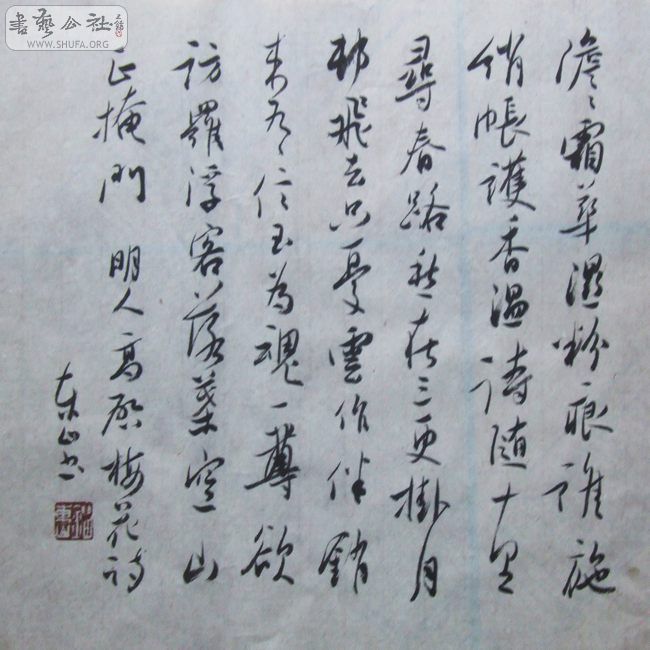 書藝公社
WWW.SHUFA.ORG
澹〻霜華濕粉痕誰施
綃帳護香溫詩隨十里
尋春路愁在三更掛月
邨飛去只憂雲作伴銷
来肯信玉為魂一尊欲
訪羅浮客落葉空山
正掩門 明人高啟梅花詩
东山书